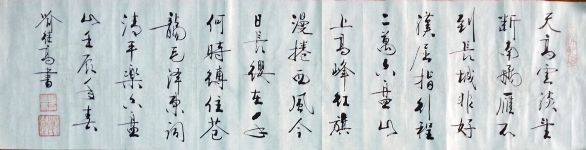 天高雲淡望
断南飛雁不
到長城非好
漢屈指行程
二萬六盤山
上高峰紅旗
漫捲西風今
日長纓在手
何時縛住蒼
龍毛澤東詞
清平樂六盤
山壬辰年春
佳高書